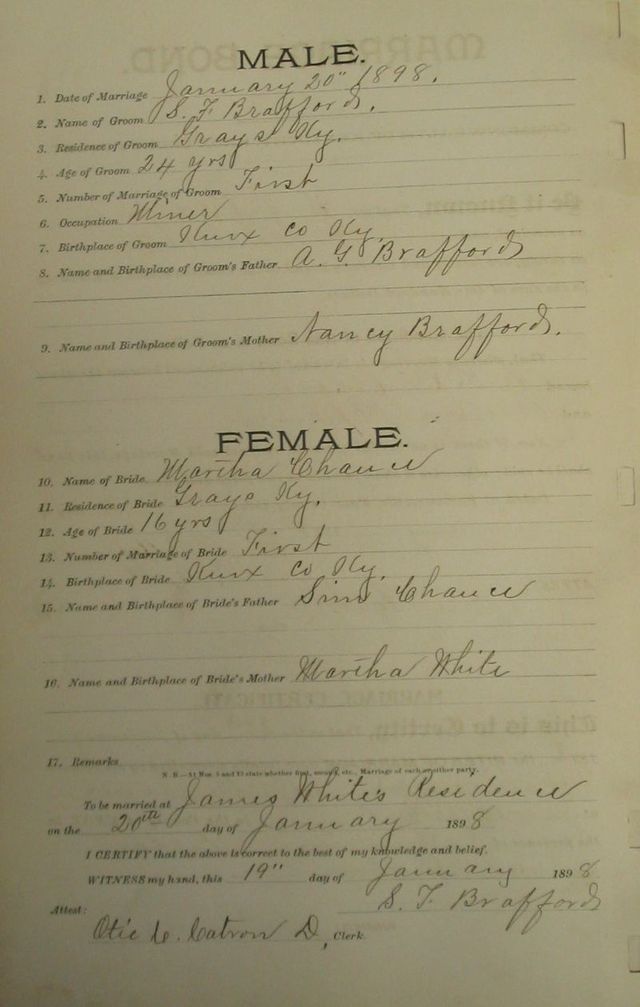 MALE.
1. Date of Marriage January 20" 1898.
2. Name of Groom S. F Brafford.
3. Residence of Groom Grays Ky.
4. Age of Groom 24 yrs
5. Number of Marriage of Groom First
6. Occupation Miner
7. Birthplace of Groom Knox Co Ky.
8. Name and Birthplace of Groom's Father A. G. Brafford
9. Name and Birthplace of Groom's Mother Nancy Brafford.
FEMALE.
10. Name of Bride Martha Chance
11. Residence of Bride Grays Ky.
12. Age of Bride 16 yrs
13. Number of Marriage of Bride First
14. Birthplace of Bride Knox Co Ky.
15. Name and Birthplace of Bride's Father Sim Chance
16. Name and Birthplace of Bride's Mother Martha White
17. Remarks
N. B.—At Nos. 5 and 13 state whether first, second, etc., Marriage of each or either party.
To be married at James White's Residence
on the 20th day of January 1898
I CERTIFY that the above is correct to the best of my knowledge and belief.
WITNESS my hand, this 19" day of January 1898
S. F. Brafford
Attest:
Otie C. Catron D, Clerk